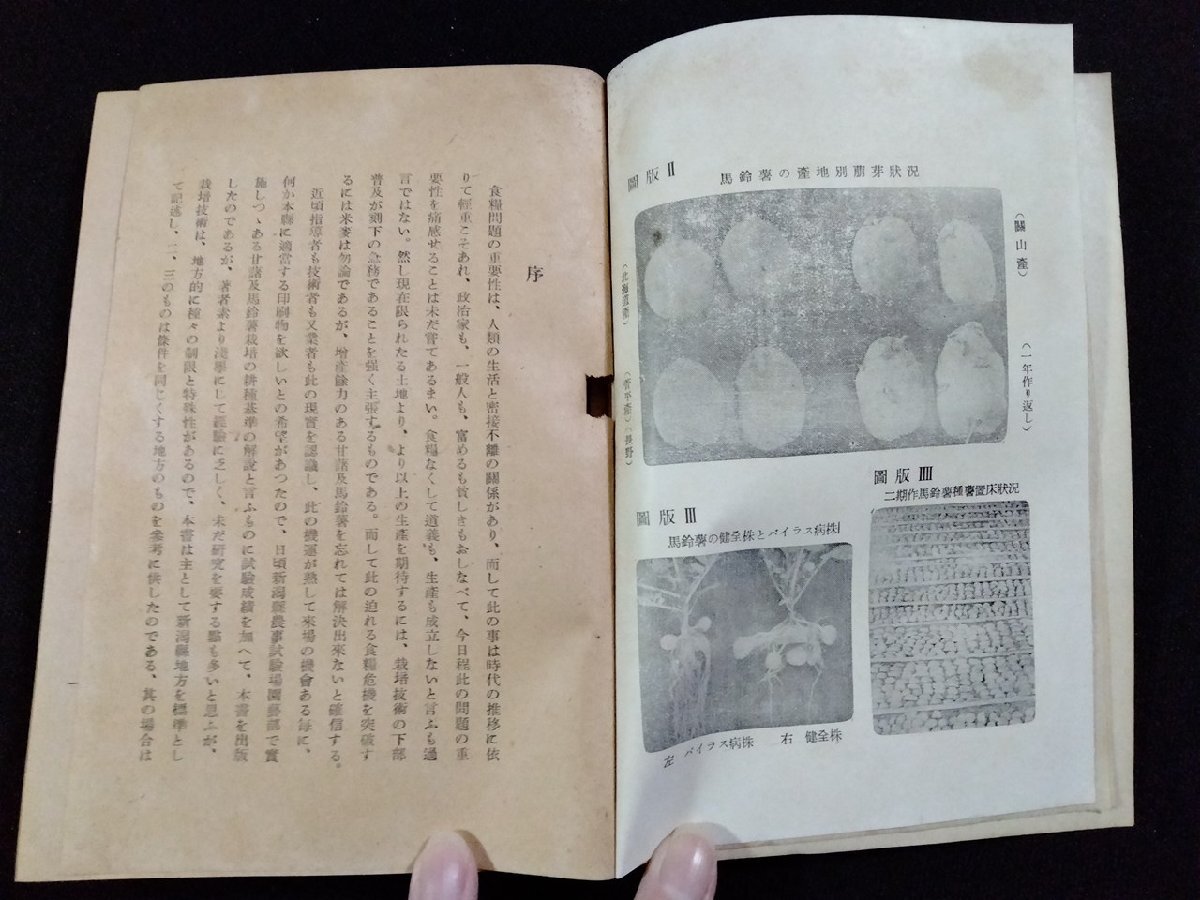 圖版Ⅱ
馬鈴薯の產地別萠芽狀況
(關山產)
(一年作り返し)
(北海道產)
(菅平產)(長野)
圖版Ⅲ
二期作馬鈴薯種薯置床狀況
圖版Ⅲ
馬鈴薯の健全株とバイラス病株
左 バイラス病株 右 健全株
序
食糧問題の重要性は、人類の生活と密接不離の關係があり、而して此の事は時代の推移に依
りて輕重こそあれ、政治家も、一般人も、富めるも貧しきもおしなべて、今日程此の問題の重
要性を痛感せることは未だ嘗てあるまい。食糧なくして道義も、生產も成立しないと言ふも過
言ではない。然し現在限られたる土地より、より以上の生產を期待するには、栽培技術の下部
普及が刻下の急務であることを强く主張するものである。而して此の迫れる食糧危機を突破す
るには米麥は勿論であるが、增產餘力のある甘藷及馬鈴薯を忘れては解決出來ないと確信する。
近頃指導者も技術者も又業者も此の現實を認識し、此の機運が熟して來場の機會ある每に、
何か本縣に適當する印刷物を欲しいとの希望があつたので、日頃新潟縣農事試驗場園藝部で實
施しつゝある甘藷及馬鈴薯栽培の耕種基準の解說と言ふものに試驗成績を加へて、本書を出版
したのであるが、著者素より淺學にして經驗に乏しく、未だ硏究を要する點も多いと思ふが、
栽培技術は、地方的に種々の制限と特殊性があるので、本書は主として新潟縣地方を標準とし
て記述し、二、三のものは條件を同じくする地方のものを參考に供したのである、其の場合は
一